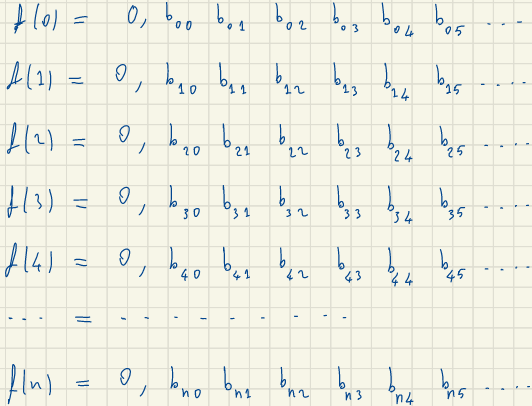 f(0) = 0, b₀₀ b₀₁ b₀₂ b₀₃ b₀₄ b₀₅ ....
f(1) = 0, b₁₀ b₁₁ b₁₂ b₁₃ b₁₄ b₁₅ ....
f(2) = 0, b₂₀ b₂₁ b₂₂ b₂₃ b₂₄ b₂₅ ....
f(3) = 0, b₃₀ b₃₁ b₃₂ b₃₃ b₃₄ b₃₅ ....
f(4) = 0, b₄₀ b₄₁ b₄₂ b₄₃ b₄₄ b₄₅ ....
... = - - - - - - - - -
f(n) = 0, bₙ₀ bₙ₁ bₙ₂ bₙ₃ bₙ₄ bₙ₅ ....